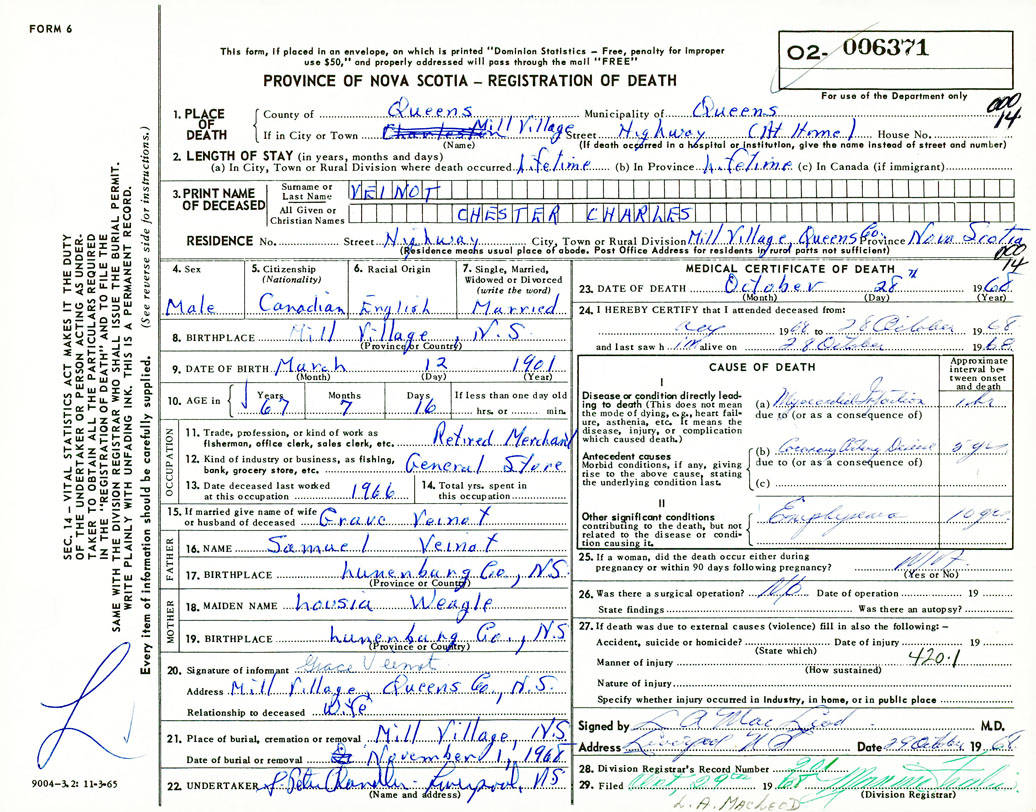 FORM 6
This form, if placed in an envelope, on which is printed "Dominion Statistics – Free, penalty for improper
use $50," and properly addressed will pass through the mail "FREE"
PROVINCE OF NOVA SCOTIA – REGISTRATION OF DEATH
02- 006371
For use of the Department only
000
14
1. PLACE OF DEATH
County of Queens Municipality of Queens
If in City or Town Charleston Mill Village Street Highway (At Home) House No.
(Name) (If death occurred in a hospital or institution, give the name instead of street and number)
2. LENGTH OF STAY (in years, months and days)
(a) In City, Town or Rural Division where death occurred Lifetime (b) In Province Lifetime (c) In Canada (if immigrant)
3. PRINT NAME OF DECEASED
Surname or Last Name VEINOT
All Given or Christian Names CHESTER CHARLES
RESIDENCE No. Street Highway City, Town or Rural Division Mill Village, Queens Co. Province Nova Scotia
(Residence means usual place of abode. Post Office Address for residents in rural parts not sufficient)
000
14
4. Sex
Male
5. Citizenship
(Nationality)
Canadian
6. Racial Origin
English
7. Single, Married, Widowed or Divorced
(write the word)
Married
8. BIRTHPLACE Mill Village, N.S.
(Province or Country)
9. DATE OF BIRTH March 12 1901
(Month) (Day) (Year)
10. AGE in Years 67 Months 7 Days 16 If less than one day old
hrs. or min.
OCCUPATION
11. Trade, profession, or kind of work as
fisherman, office clerk, sales clerk, etc. Retired Merchant
12. Kind of industry or business, as fishing,
bank, grocery store, etc. General Store
13. Date deceased last worked
at this occupation 1966
14. Total yrs. spent in
this occupation
15. If married give name of wife
or husband of deceased Grace Veinot
FATHER
16. NAME Samuel Veinot
17. BIRTHPLACE Lunenburg Co., N.S.
(Province or Country)
MOTHER
18. MAIDEN NAME Lousia Weagle
19. BIRTHPLACE Lunenburg Co., N.S
(Province or Country)
20. Signature of informant Grace Veinot
Address Mill Village, Queens Co., N.S.
Relationship to deceased Wife
21. Place of burial, cremation or removal Mill Village, N.S.
Date of burial or removal November 1, 1968
22. UNDERTAKER Chandler Liverpool, NS
(Name and address)
MEDICAL CERTIFICATE OF DEATH
23. DATE OF DEATH October 28 1968
(Month) (Day) (Year)
24. I HEREBY CERTIFY that I attended deceased from:
1968 to 28 October 1968
and last saw him alive on 28 October 1968
CAUSE OF DEATH
Approximate interval between onset and death
I
Disease or condition directly leading to death (This does not mean the mode of dying, e.g., heart failure, asthenia, etc. It means the disease, injury, or complication which caused death.)
(a) Myocardial Infarction 1 hr
due to (or as a consequence of)
Antecedent causes
Morbid conditions, if any, giving rise to the above cause, stating the underlying condition last.
(b) Coronary Artery Disease 5 yrs
due to (or as a consequence of)
(c)
II
Other significant conditions
contributing to the death, but not related to the disease or condition causing it.
Emphysema 10 yrs
25. If a woman, did the death occur either during
pregnancy or within 90 days following pregnancy?
(Yes or No)
26. Was there a surgical operation? No Date of operation 19
State findings Was there an autopsy?
27. If death was due to external causes (violence) fill in also the following: –
Accident, suicide or homicide? Date of injury 19
(State which)
Manner of injury 420.1
(How sustained)
Nature of injury
Specify whether injury occurred in Industry, in home, or in public place
Signed by L A MacLeod M.D.
Address Liverpool N S Date 29 October 1968
28. Division Registrar's Record Number 901
29. Filed Oct. 29th 1968
(Division Registrar)
L.A. MACLEOD
SEC. 14 – VITAL STATISTICS ACT MAKES IT THE DUTY
OF THE UNDERTAKER OR PERSON ACTING AS UNDER-
TAKER TO OBTAIN ALL THE PARTICULARS REQUIRED
IN THE "REGISTRATION OF DEATH" AND TO FILE THE
SAME WITH THE DIVISION REGISTRAR WHO SHALL ISSUE THE BURIAL PERMIT.
WRITE PLAINLY WITH UNFADING INK. THIS IS A PERMANENT RECORD.
Every item of information should be carefully supplied. (See reverse side for instructions.)
9004-3.2: 11-3-65